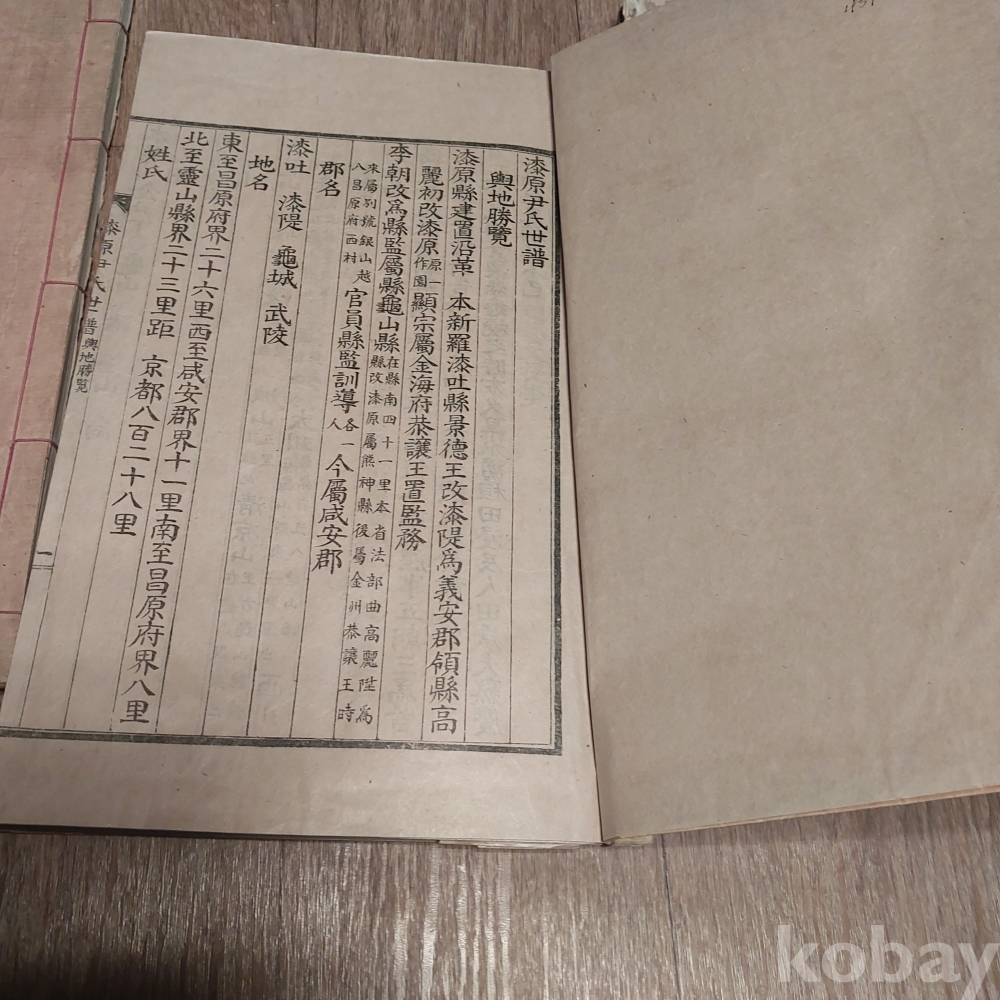 漆原尹氏世譜
輿地勝覽
漆原縣建置沿革 本新羅漆吐縣景德王改漆隄爲義安郡領縣高
麗初改漆原原一作園顯宗屬金海府恭讓王置監務
李朝改爲縣監屬縣龜山縣在縣南四十一里本省法部曲高麗陞爲縣改漆原屬熊神縣後屬金州恭讓王時
來屬別號銀山越八昌原府西村 官員縣監訓導各一人 今屬咸安郡
郡名
漆吐 漆隄 龜城 武陵
地名
東至昌原府界二十六里西至咸安郡界十一里南至昌原府界八里
北至靈山縣界二十三里距 京都八百二十八里
姓氏
漆原尹氏世譜 輿地勝覽
一
kobay